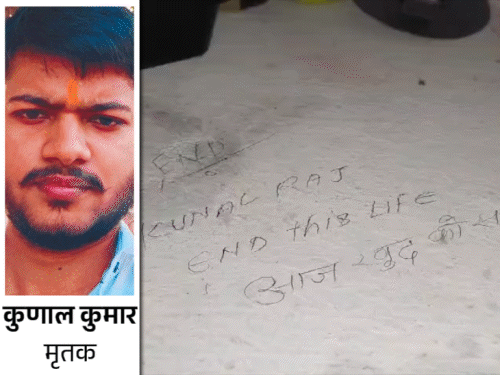 कुणाल कुमार
मृतक
END
KUNAL RAJ
END thiS LIFE
आज खुद को